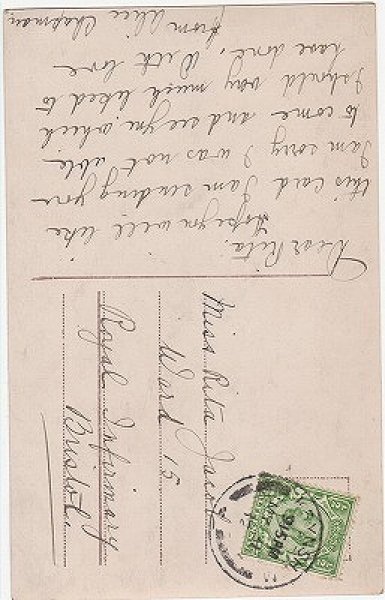 Dear Rita.
Hope you will like
this card I am sending you
I am sorry I was not able
to come and see you which
I should very much liked to
have done. With love
from Alice Chapman
Miss Rita Jacobs
Ward 15
Royal Infirmary
Bristol.